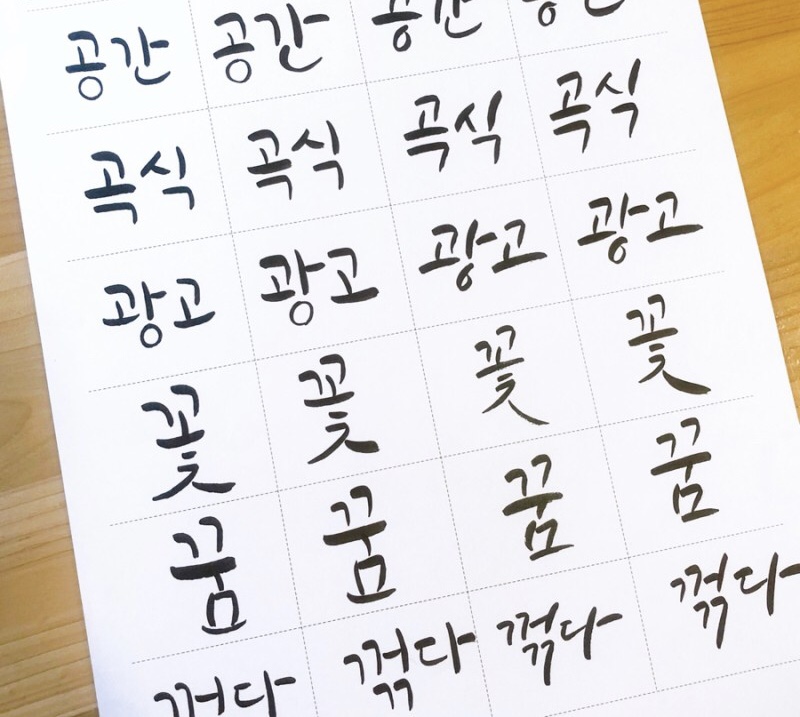 공간 공간 공간 공간
곡식 곡식 곡식 곡식
광고 광고 광고 광고
꽃 꽃 꽃 꽃
꿈 꿈 꿈 꿈
꺾다 꺾다 꺾다 꺾다